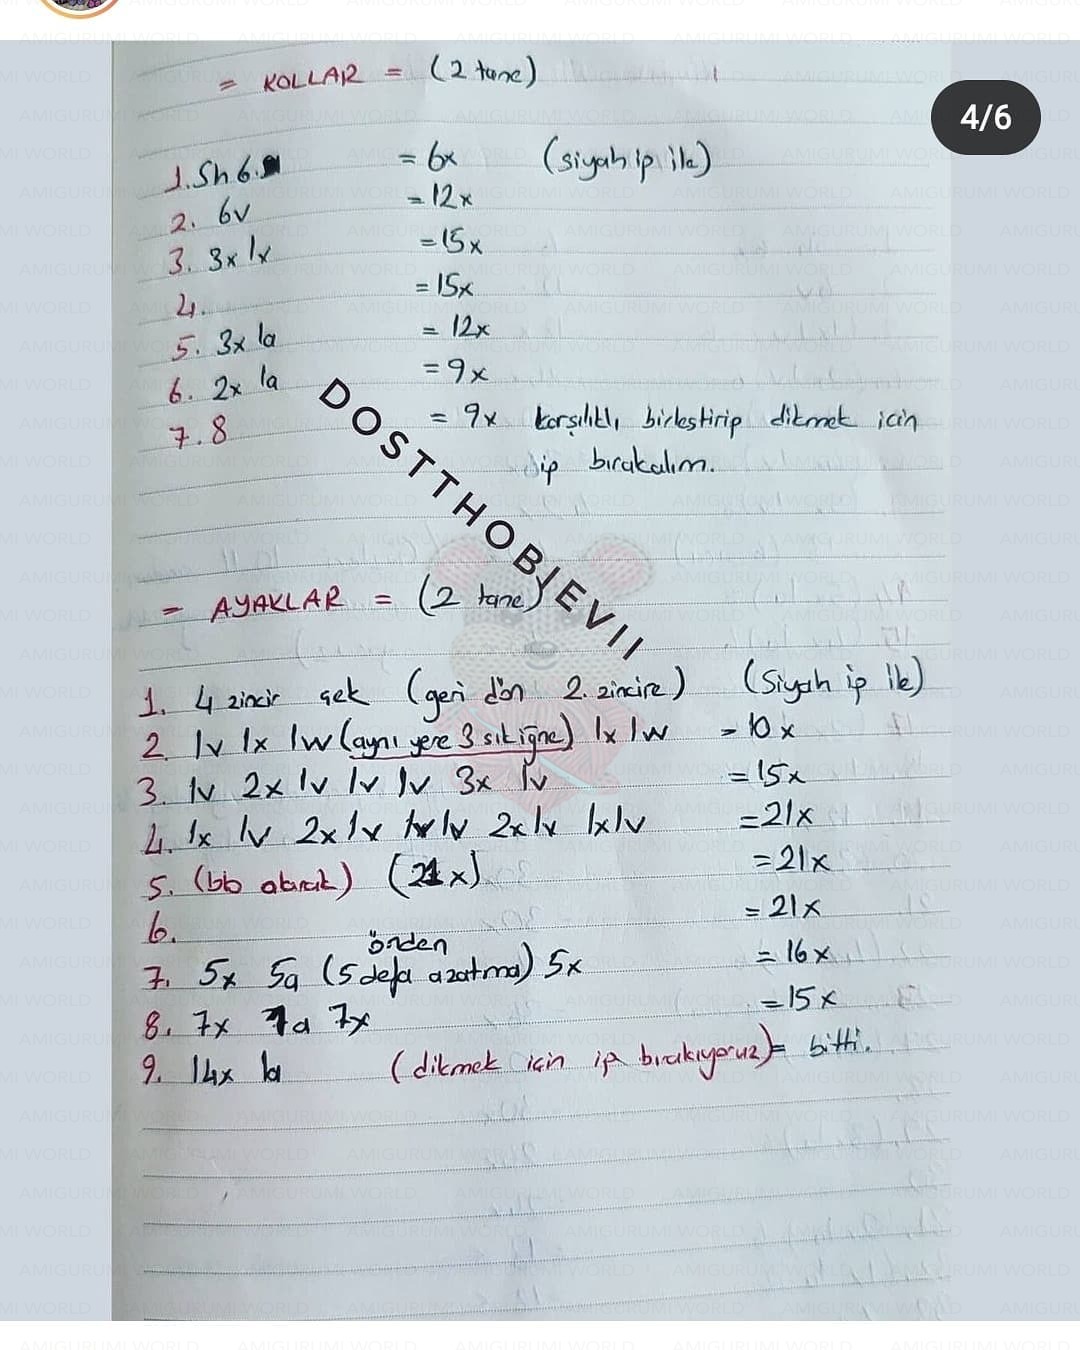 4/6
= KOLLAR = (2 tane)
1. Sh 6. = 6x (siyah ip ile)
2. 6v = 12x
3. 3x 1x = 15x
4. = 15x
5. 3x 1a = 12x
6. 2x 1a = 9x
7.8 = 9x karşılıklı birleştirip dikmek için
ip bırakalım.
DOSTTHOBİEVİİ
= AYAKLAR = (2 tane)
1. 4 zincir çek (geri dön 2. zincire) (Siyah ip ile)
2. 1v 1x 1w (aynı yere 3 sık iğne) 1x 1w = 10x
3. 1v 2x 1v 1v 1v 3x 1v = 15x
4. 1x 1v 2x 1v 1v 2x 1v 1x 1v = 21x
5. (bib alarak) (21x) = 21x
6. = 21x
önden
7. 5x 5a (5 defa azatma) 5x = 16x
8. 7x 1a 7x = 15x
9. 14x 1a (dikmek için ip bırakıyoruz) = bitti.
AMIGURUMI WORLD